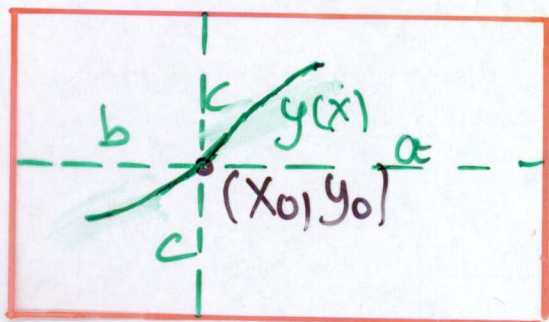 c
b
y(x)
a
(x0, y0)
c